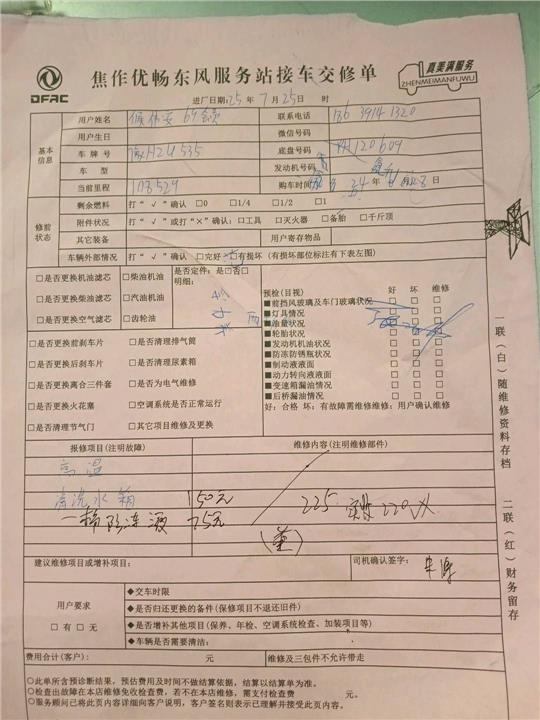 DFAC
焦作优畅东风服务站接车交修单
真美满服务
ZHENMEIMANFUWU
进厂日期:25 年 7 月 25 日 时
基本信息
用户姓名
联系电话 136 3914 1320
用户生日
微信号码
车牌号 豫H24535
底盘号码 120609
车 型
发动机号码
当前里程 103529
购车时间 年 日
修前状态
剩余燃料 打"√"确认 □0 □1/4 □1/2 □1
附件状况 打"√"或打"×"确认:□工具 □灭火器 □备胎 □千斤顶
其它装备
用户寄存物品
车辆外部情况 打"√"确认 □完好 □有损坏 (有损坏部位标注有下表左图)
□是否更换机油滤芯 □柴油机油
□是否更换柴油滤芯 □汽油机油
□是否更换空气滤芯 □齿轮油
是否定件: □是□否
明细:
预检(目视) 好 坏 维修
■前挡风玻璃及车门玻璃状况 □ □ □
■灯具情况 □ □ □
■油量状况 □ □ □
■轮胎状况 □ □ □
■发动机机油状况 □ □ □
■防冻防锈瓶状况 □ □ □
■制动液液面 □ □ □
■动力转向液液面 □ □ □
■变速箱漏油情况 □ □ □
■后桥漏油情况 □ □ □
好:合格 坏:有故障需维修维修:用户确认维修
□是否更换前刹车片 □是否清理排气筒
□是否更换后刹车片 □是否清理尿素箱
□是否更换离合三件套 □是否为电气维修
□是否更换火花塞 □空调系统是否正常运行
□是否清理节气门 □其它项目维修及更换
报修项目(注明故障)
维修内容(注明维修部件)
高温
清洗水箱 150元
一桶防冻液 75元
225 实收220
建议维修项目或增补项目:
司机确认签字:
用户要求
□有 □无
◆交车时限
◆是否归还更换的备件(保修项目不退还旧件)
◆是否增补其他项目(保养、年检、空调系统检查、加装项目等)
◆车辆是否需要清洁:
费用合计(客户): 元
维修及三包件不允许带走
○此单所含预诊断结果,预估费用及时间不做结算依据,结算以结算单为准。
○检查出故障在本店维修免收检查费,若不在本店维修,需支付检查费 元。
○服务顾问已将此页内容详细向客户说明,客户签名则表示已理解并接受此页内容。
一联(白)随维修资料存档
二联(红)财务留存